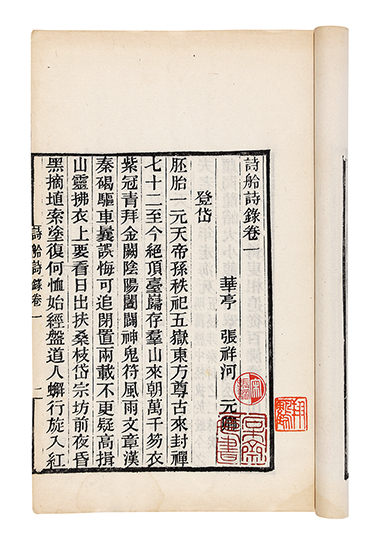 詩舲詩錄卷一
華亭 張祥河 元卿
登岱
胚胎一元天帝孫秩祀五嶽東方尊古來封禪
七十二至今絕頂臺巋存羣山來朝萬千笏衣
紫冠青拜金闕陰陽闔闢神鬼符風雨文章漢
秦碣驅車曩誤悔可追閉置兩載不更疑高揖
山靈拂衣上要看日出扶桑枝岱宗坊前夜昏
黑摘埴索塗復何恤始經盤道人蟹行旋入紅
詩舲詩錄卷一 二